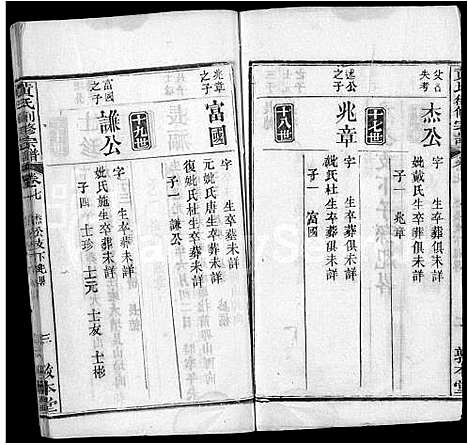 父名
失考
杰公
字 生卒葬俱未詳
妣戴氏生卒葬俱未詳
子一 兆章
十七世
杰公
之子
兆章
字 生卒葬俱未詳
妣氏杜生卒葬俱未詳
子一 富國
十八世
敦本堂
兆章
之子
富國
字 生卒葬未詳
元妣氏唐生卒葬未詳
復妣氏杜生卒葬未詳
子一 謙公
十九世
富國
之子
謙公
字 生卒葬未詳
妣氏施生卒葬未詳
子四 士珍 士元 士友 士彬
黃氏創修宗譜
卷七
敦本堂